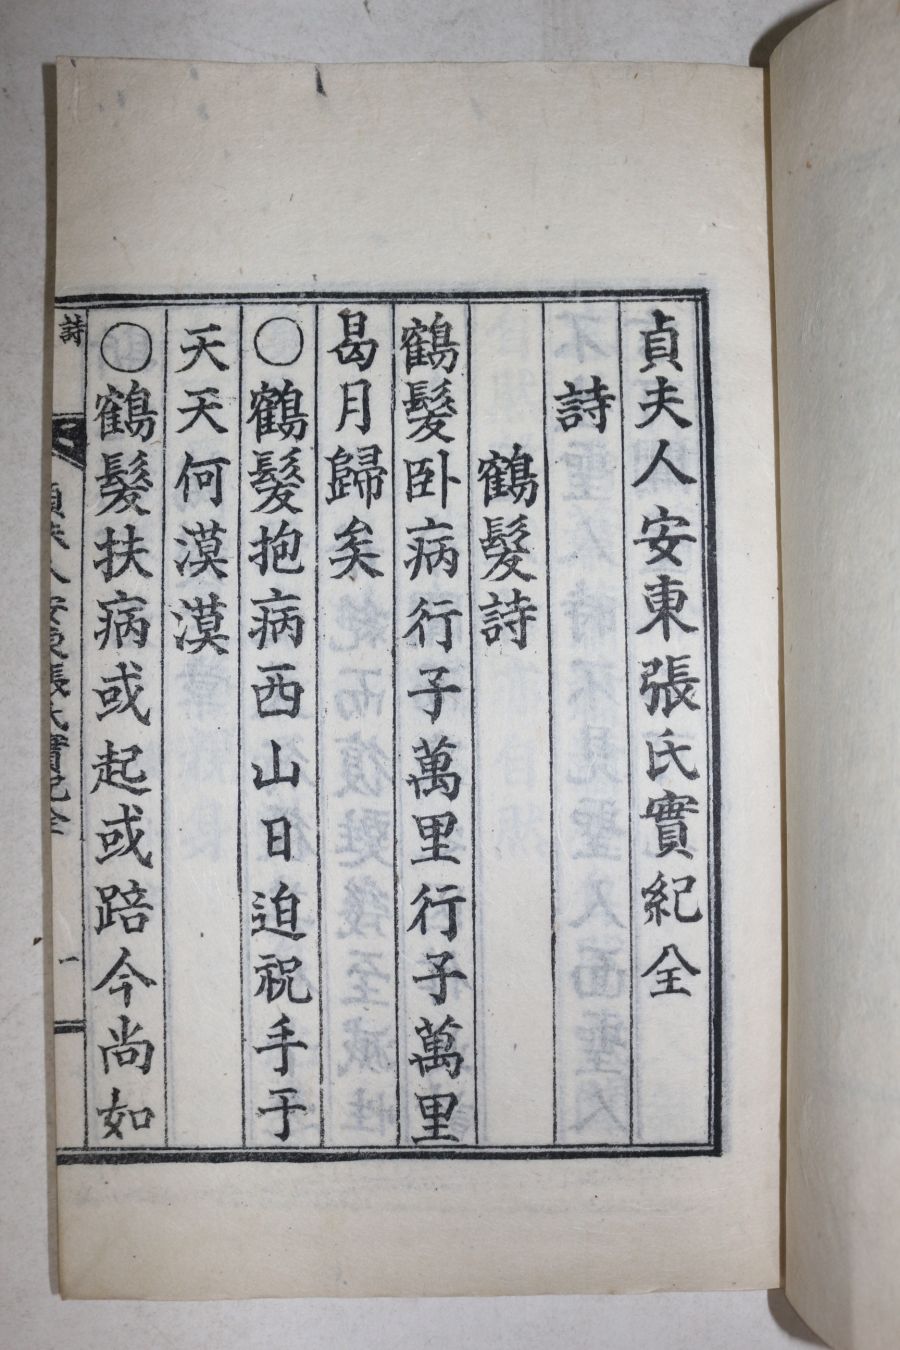 貞夫人安東張氏實紀全
詩
鶴髮詩
鶴髮卧病行子萬里行子萬里
曷月歸矣
〇鶴髮抱病西山日迫祝手于
天天何漠漠
〇鶴髮扶病或起或踣今尚如
詩
貞夫人安東張氏實紀全
一